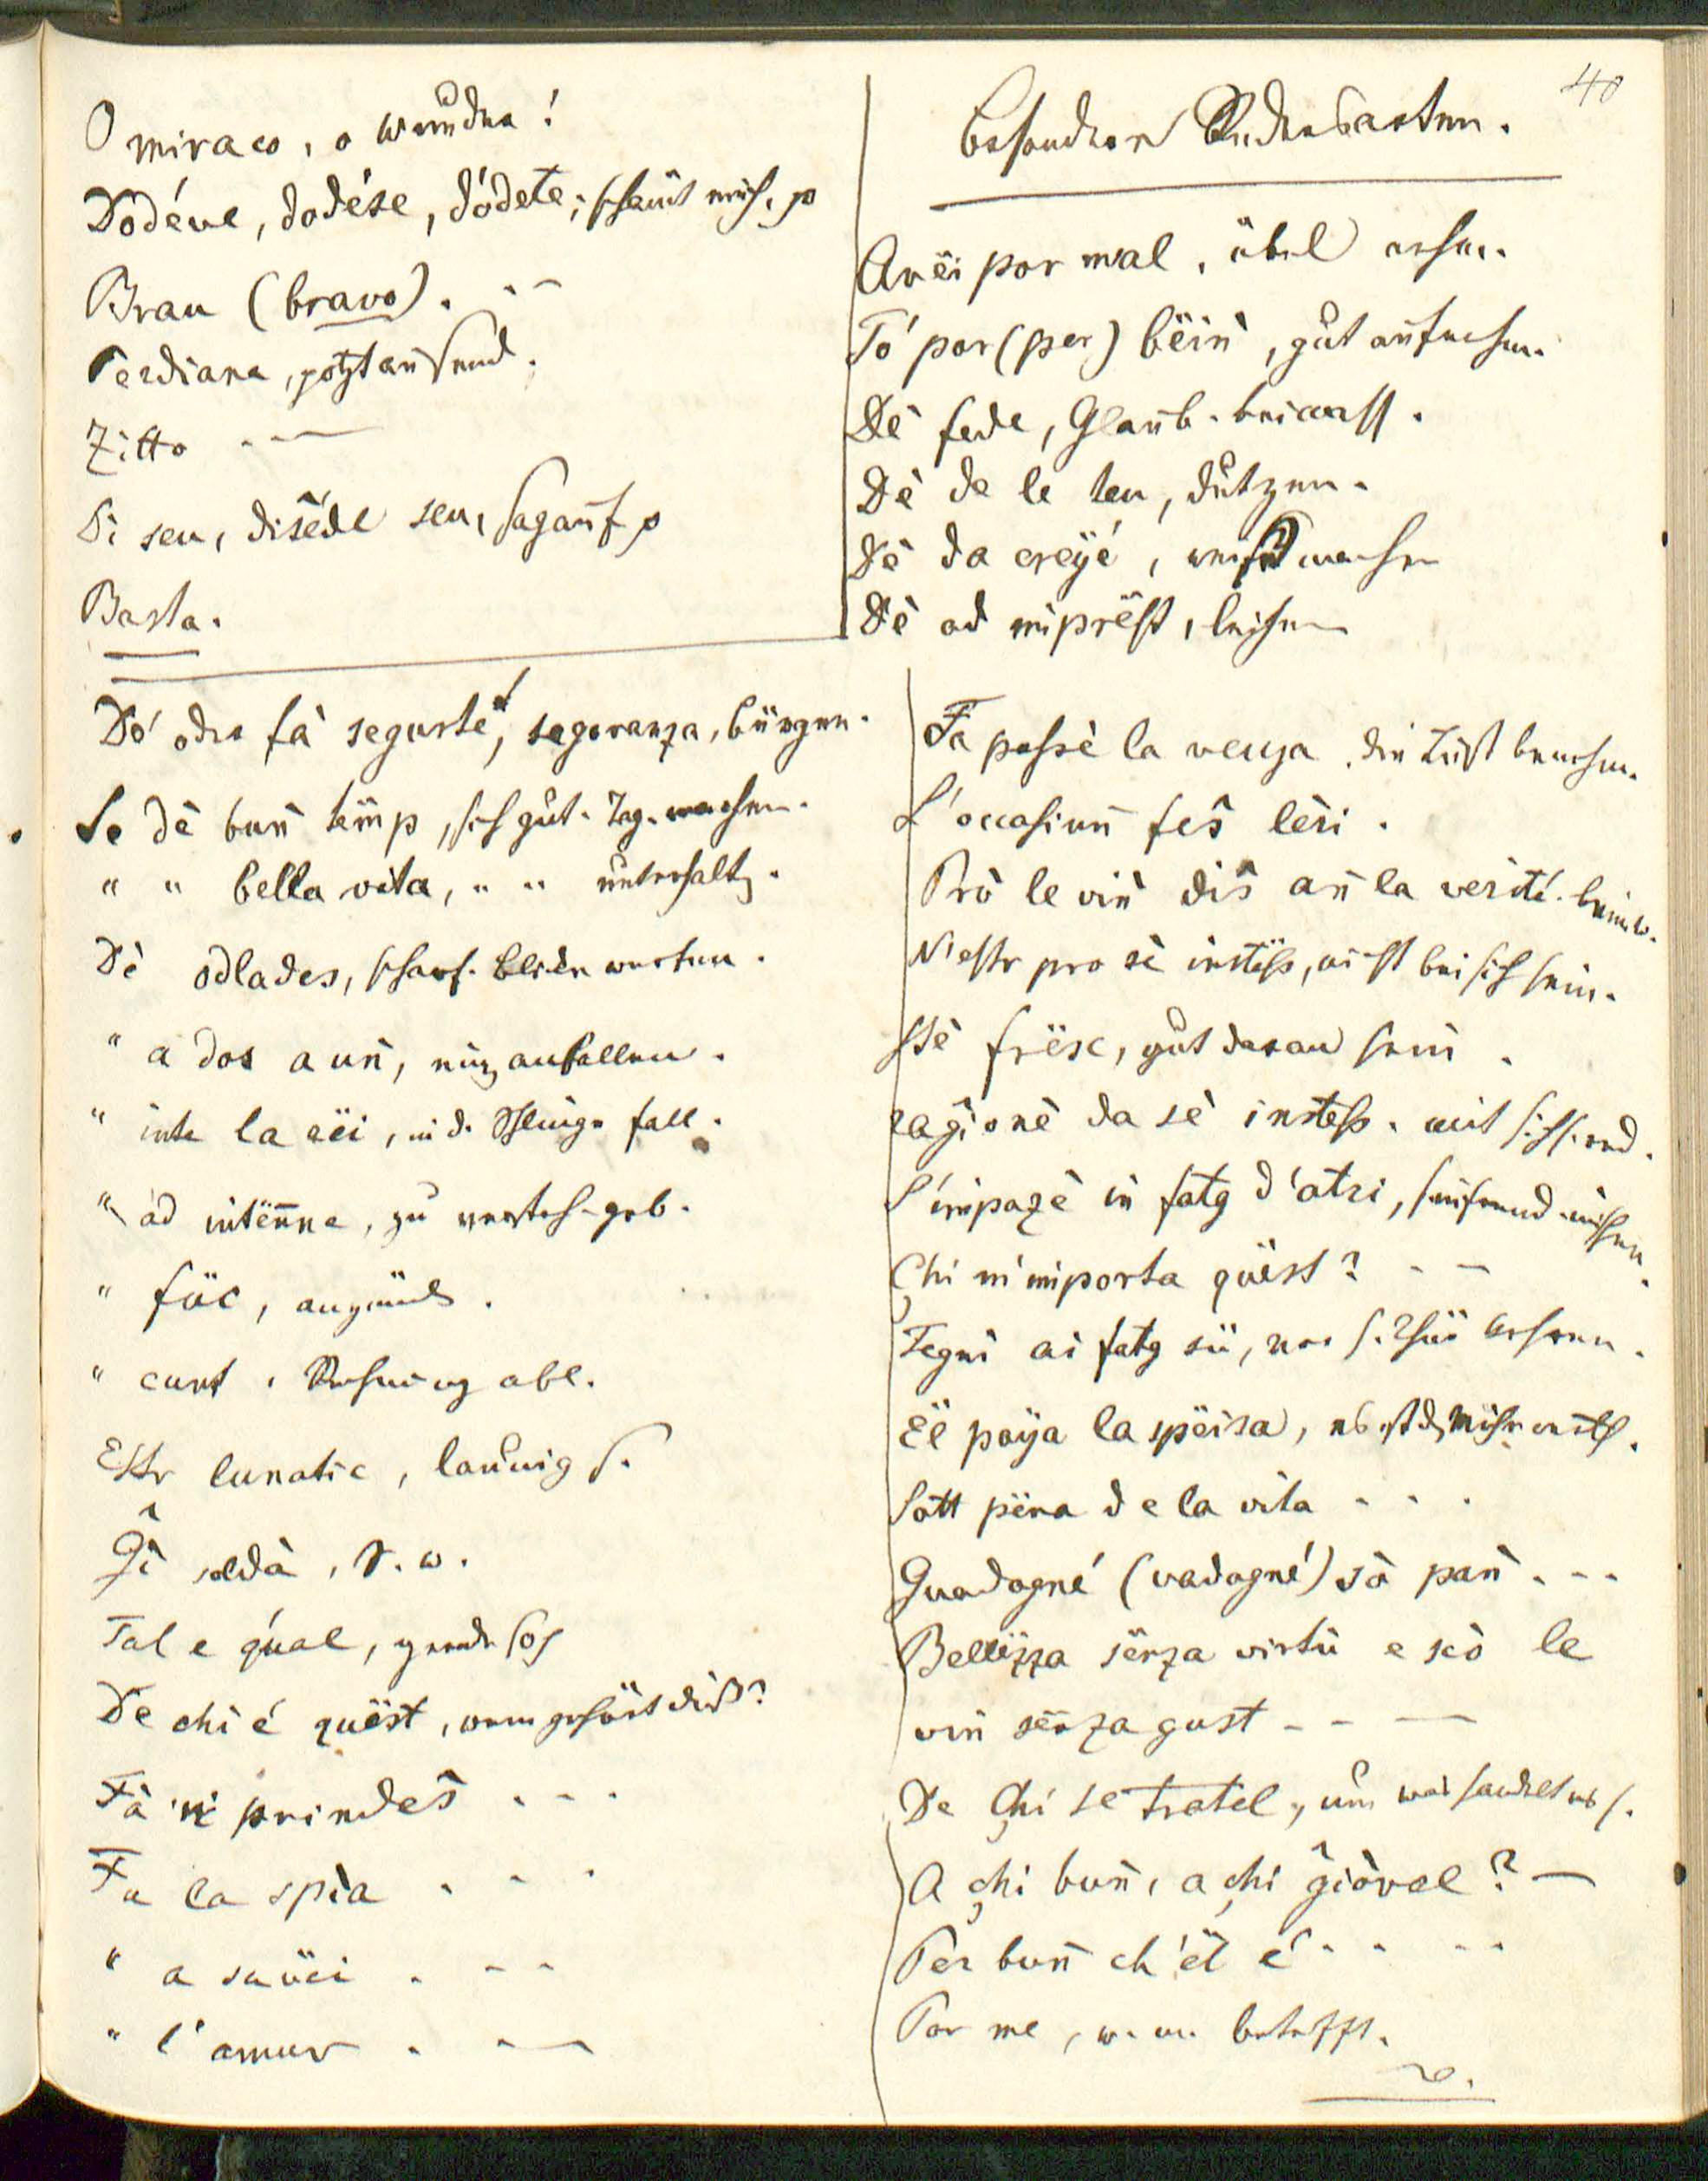 40
O miraco, o wunder!
Dodéve, dodése, dódete; schämt euch. p
Brau (bravo). . –
Perdiana, potztausend.
Zitto . —
Dì seu, diséde seu, sagauf p
Basta.
Besondere Redensarten.
Avëi por mal, übel nehm.
Tó por (per) bëiṅ, gut aufnehm.
Dè fede, Glaub. beimess.
Dè da le teu, dutzen.
Dè da creyé, weiß machen
Dè ad imprëst, leihen
Dó odr fà segurté, segoranza, bürgen.
Se dè bun̄ tëmp, sich gut. Tag. machen.
" " bella vita, " " unterhalt.
Dè odlades, scharf. Blicke werfen.
" a dos a un̄, einz anfallen.
" inte la rëi, in d. Schlinge fall.
" ad intënne, zu versteh. geb.
" füc, anzünd.
" cunt, Rechnung abl.
Estr lunatic, launig s.
Gî soldà, S. w.
Tal e qual, gerade so
De chi é quëst, wem gehört dieß?
Fà 'n prindes . . .
Fa la spia . . .
" a savëi . – –
" l'amur . —
Fa passè la veuya, die Lust benehm.
L'occasiun̄ feš lêri.
Prò le vin̄ diš an̄ la verité. beim w.
N'estr pro sè instëss, nicht bei sich sein.
Stè frësc, gut daran sein.
ragionè da sè instess. mit sich red.
S'impazè in fatg d'atri, sich fremd. mischen.
Chi m'importa quëst? . –
Tegni ai fatg sü, vor s. Thür kehren.
Ël paya la spëisa, es ist d. Mühe werth.
Sott pëna de la vita . . .
Guadagné (vadagné) sò pan̄ . – –
Bellëzza sënza virtù e scò le
vin̄ sënza gust – – —
De chi se tratel, um was handelt es s.
A chi bun̄, a chi giòvel? —
Per bun̄ ch'ël é . . . .
Por me, w. m. betrifft.